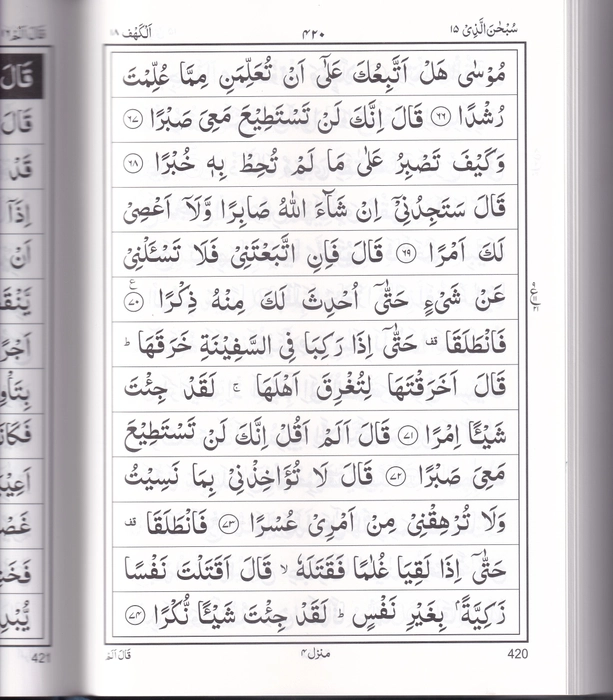 سُبْحٰنَ الَّذِيْۤ ١٥
٤٢٠
اَلْكَهْف ١٨
مُوْسٰى هَلْ اَتَّبِعُكَ عَلٰۤى اَنْ تُعَلِّمَنِ مِمَّا عُلِّمْتَ
رُشْدًا ﴿٦٦﴾ قَالَ اِنَّكَ لَنْ تَسْتَطِيْعَ مَعِيَ صَبْرًا ﴿٦٧﴾
وَكَيْفَ تَصْبِرُ عَلٰى مَا لَمْ تُحِطْ بِهٖ خُبْرًا ﴿٦٨﴾
قَالَ سَتَجِدُنِيْۤ اِنْ شَآءَ اللّٰهُ صَابِرًا وَّلَاۤ اَعْصِيْ
لَكَ اَمْرًا ﴿٦٩﴾ قَالَ فَاِنِ اتَّبَعْتَنِيْ فَلَا تَسْـَٔلْنِيْ
عَنْ شَيْءٍ حَتّٰۤى اُحْدِثَ لَكَ مِنْهُ ذِكْرًا ﴿٧٠﴾ ع
فَانْطَلَقَا قف حَتّٰۤى اِذَا رَكِبَا فِي السَّفِيْنَةِ خَرَقَهَا ط
قَالَ اَخَرَقْتَهَا لِتُغْرِقَ اَهْلَهَا ج لَقَدْ جِئْتَ
شَيْـًٔا اِمْرًا ﴿٧١﴾ قَالَ اَلَمْ اَقُلْ اِنَّكَ لَنْ تَسْتَطِيْعَ
مَعِيَ صَبْرًا ﴿٧٢﴾ قَالَ لَا تُؤَاخِذْنِيْ بِمَا نَسِيْتُ
وَلَا تُرْهِقْنِيْ مِنْ اَمْرِيْ عُسْرًا ﴿٧٣﴾ فَانْطَلَقَا قف
حَتّٰۤى اِذَا لَقِيَا غُلٰمًا فَقَتَلَهٗ لا قَالَ اَقَتَلْتَ نَفْسًا
زَكِيَّةًۢ بِغَيْرِ نَفْسٍ ط لَقَدْ جِئْتَ شَيْـًٔا نُّكْرًا ﴿٧٤﴾
420
منزل ٤
قَالَ اَلَمْ
قَالَ
قَالَ
قَدْ
اِذَاۤ
اَنْ
421